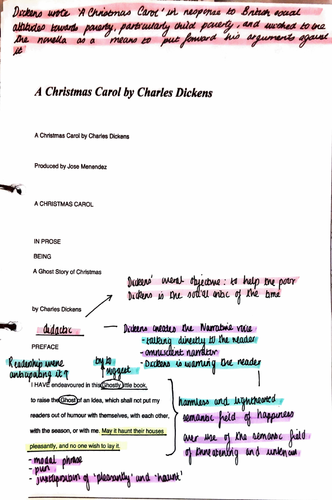 Dickens wrote 'A Christmas Carol' in response to British social
attitudes towards poverty, particularly child poverty, and wished to use
the novella as a means to put forward his arguments against
it
A Christmas Carol by Charles Dickens
A Christmas Carol by Charles Dickens
Produced by Jose Menendez
A CHRISTMAS CAROL
IN PROSE
BEING
A Ghost Story of Christmas
Dickens' moral objective: to help the poor
Dickens is the social critic of the time
by Charles Dickens
didactic
Dickens creates the Narrative voice
- talking directly to the reader
- omniscient narrator
- Dickens is warning the reader
PREFACE
Readership were
anticipating it
suggest
I HAVE endeavoured in this Ghostly little book,
to raise the Ghost of an Idea, which shall not put my
readers out of humour with themselves, with each other,
with the season, or with me. May it haunt their houses
pleasantly, and no one wish to lay it.
harmless and lighthearted
semantic field of happiness
over use of the semantic field
of threatening and unknown
- modal phrase
- pun
- juxtaposition of 'pleasantly' and 'haunt'